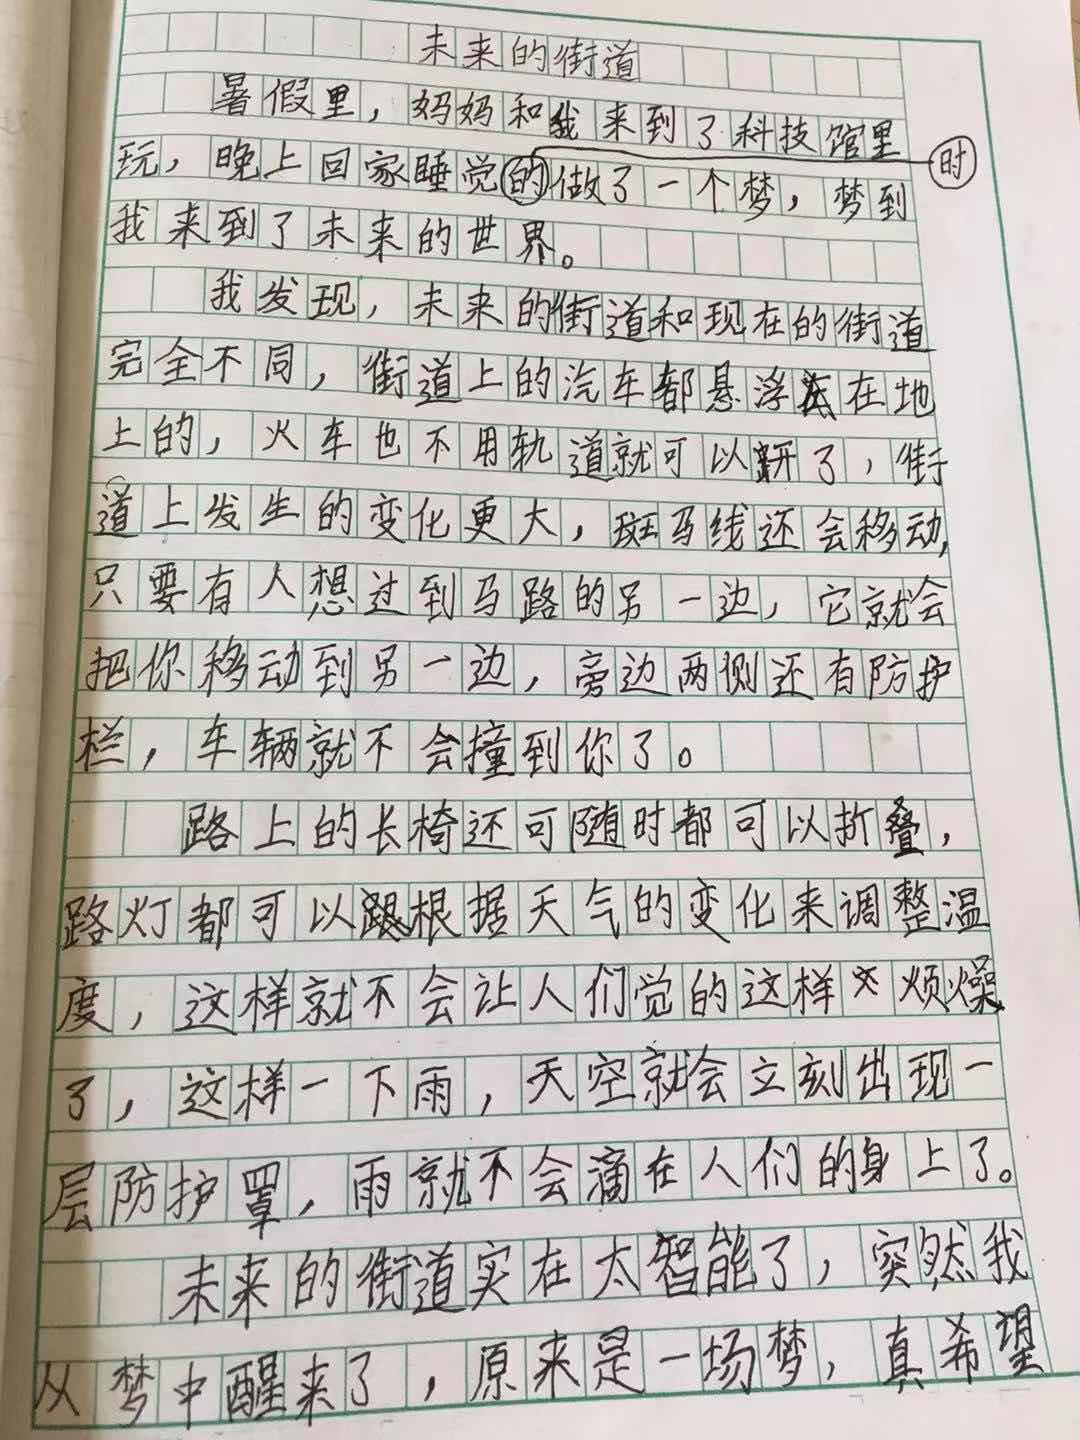 未来的街道
暑假里，妈妈和我来到了科技馆里
玩，晚上回家睡觉的做了一个梦，梦到
时
我来到了未来的世界。
我发现，未来的街道和现在的街道
完全不同，街道上的汽车都悬浮在地
上的，火车也不用轨道就可以开了，街
道上发生的变化更大，斑马线还会移动，
只要有人想过到马路的另一边，它就会
把你移动到另一边，旁边两侧还有防护
栏，车辆就不会撞到你了。
路上的长椅还可随时都可以折叠，
路灯都可以根据天气的变化来调整温
度，这样就不会让人们觉的这样烦燥
了，这样一下雨，天空就会立刻出现一
层防护罩，雨就不会滴在人们的身上了。
未来的街道实在太智能了，突然我
从梦中醒来了，原来是一场梦，真希望